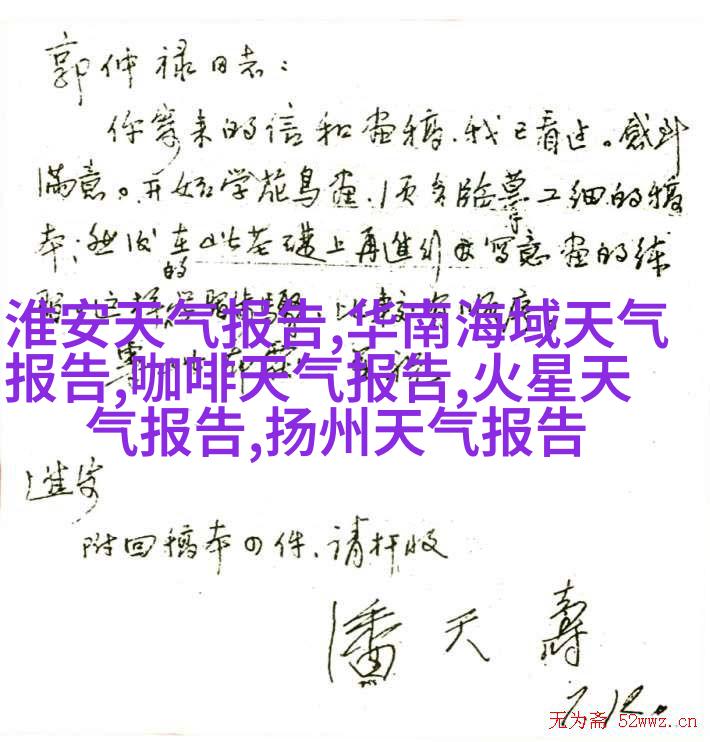 郭仲禄同志：
你寄来的信和画稿，我已看过。感到
满意。开始学花鸟画，须多临摹工细的稿
本；然后在此基础上再进行写意画的练
的
淮安天气报告,华南海域天气
报告,咖啡天气报告,火星天
气报告,扬州天气报告
附回稿本四件、请检收
潘天寿
7.12.
无为斋 52wwz.cn